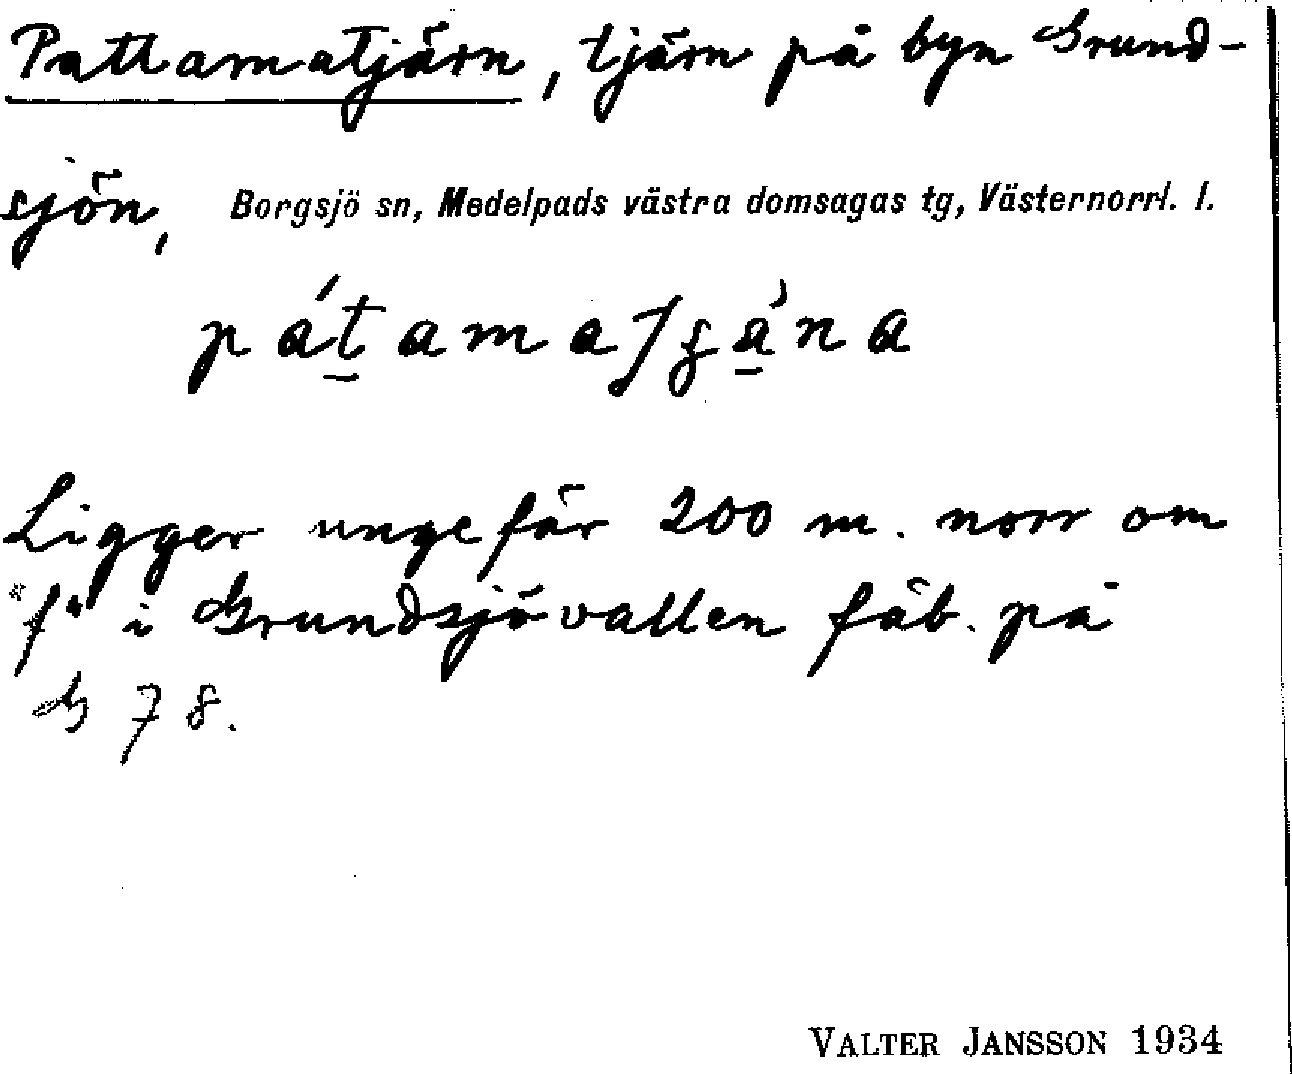 Pattamatjärn, tjärn på byn Grund-
sjön, Borgsjö sn, Medelpads västra domsagas tg, Västernorrl. l.
Ligger ungefär 200 m. norr om
"f" i Grundsjövallen fäb. på
G 78.
VALTER JANSSON 1934